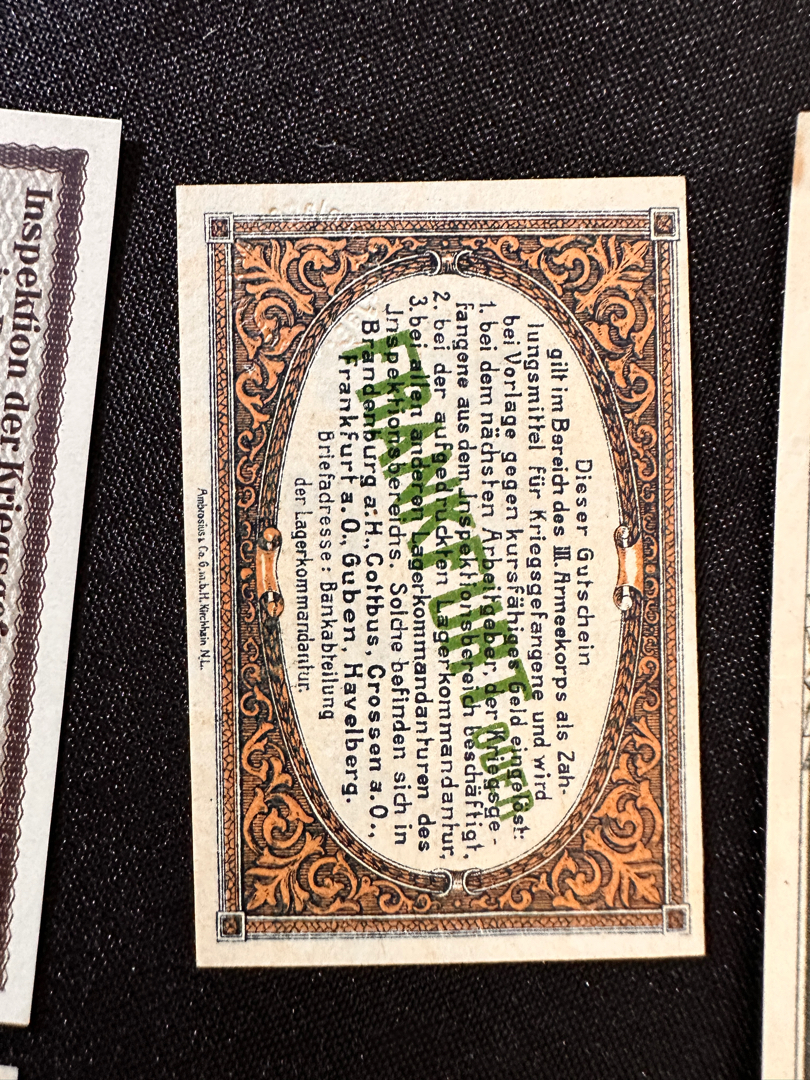 Dieser Gutschein
gilt im Bereich des III. Armeekorps als Zah-
lungsmittel für Kriegsgefangene und wird
bei Vorlage gegen kursfähiges Geld eingelöst:
1. bei dem nächsten Arbeitgeber, der Kriegsge-
fangene aus dem Inspektionsbereich beschäftigt,
2. bei der aufgedruckten Lagerkommandantur,
3. bei allen anderen Lagerkommandanturen des
Inspektionsbereichs. Solche befinden sich in
Brandenburg a. H., Cottbus, Crossen a. O.,
Frankfurt a. O., Guben, Havelberg.
Briefadresse: Bankabteilung
der Lagerkommandantur.
FRANKFURT ODER
Ambrosius & Co. G.m.b.H. Kirchhain N.L.
Inspektion der